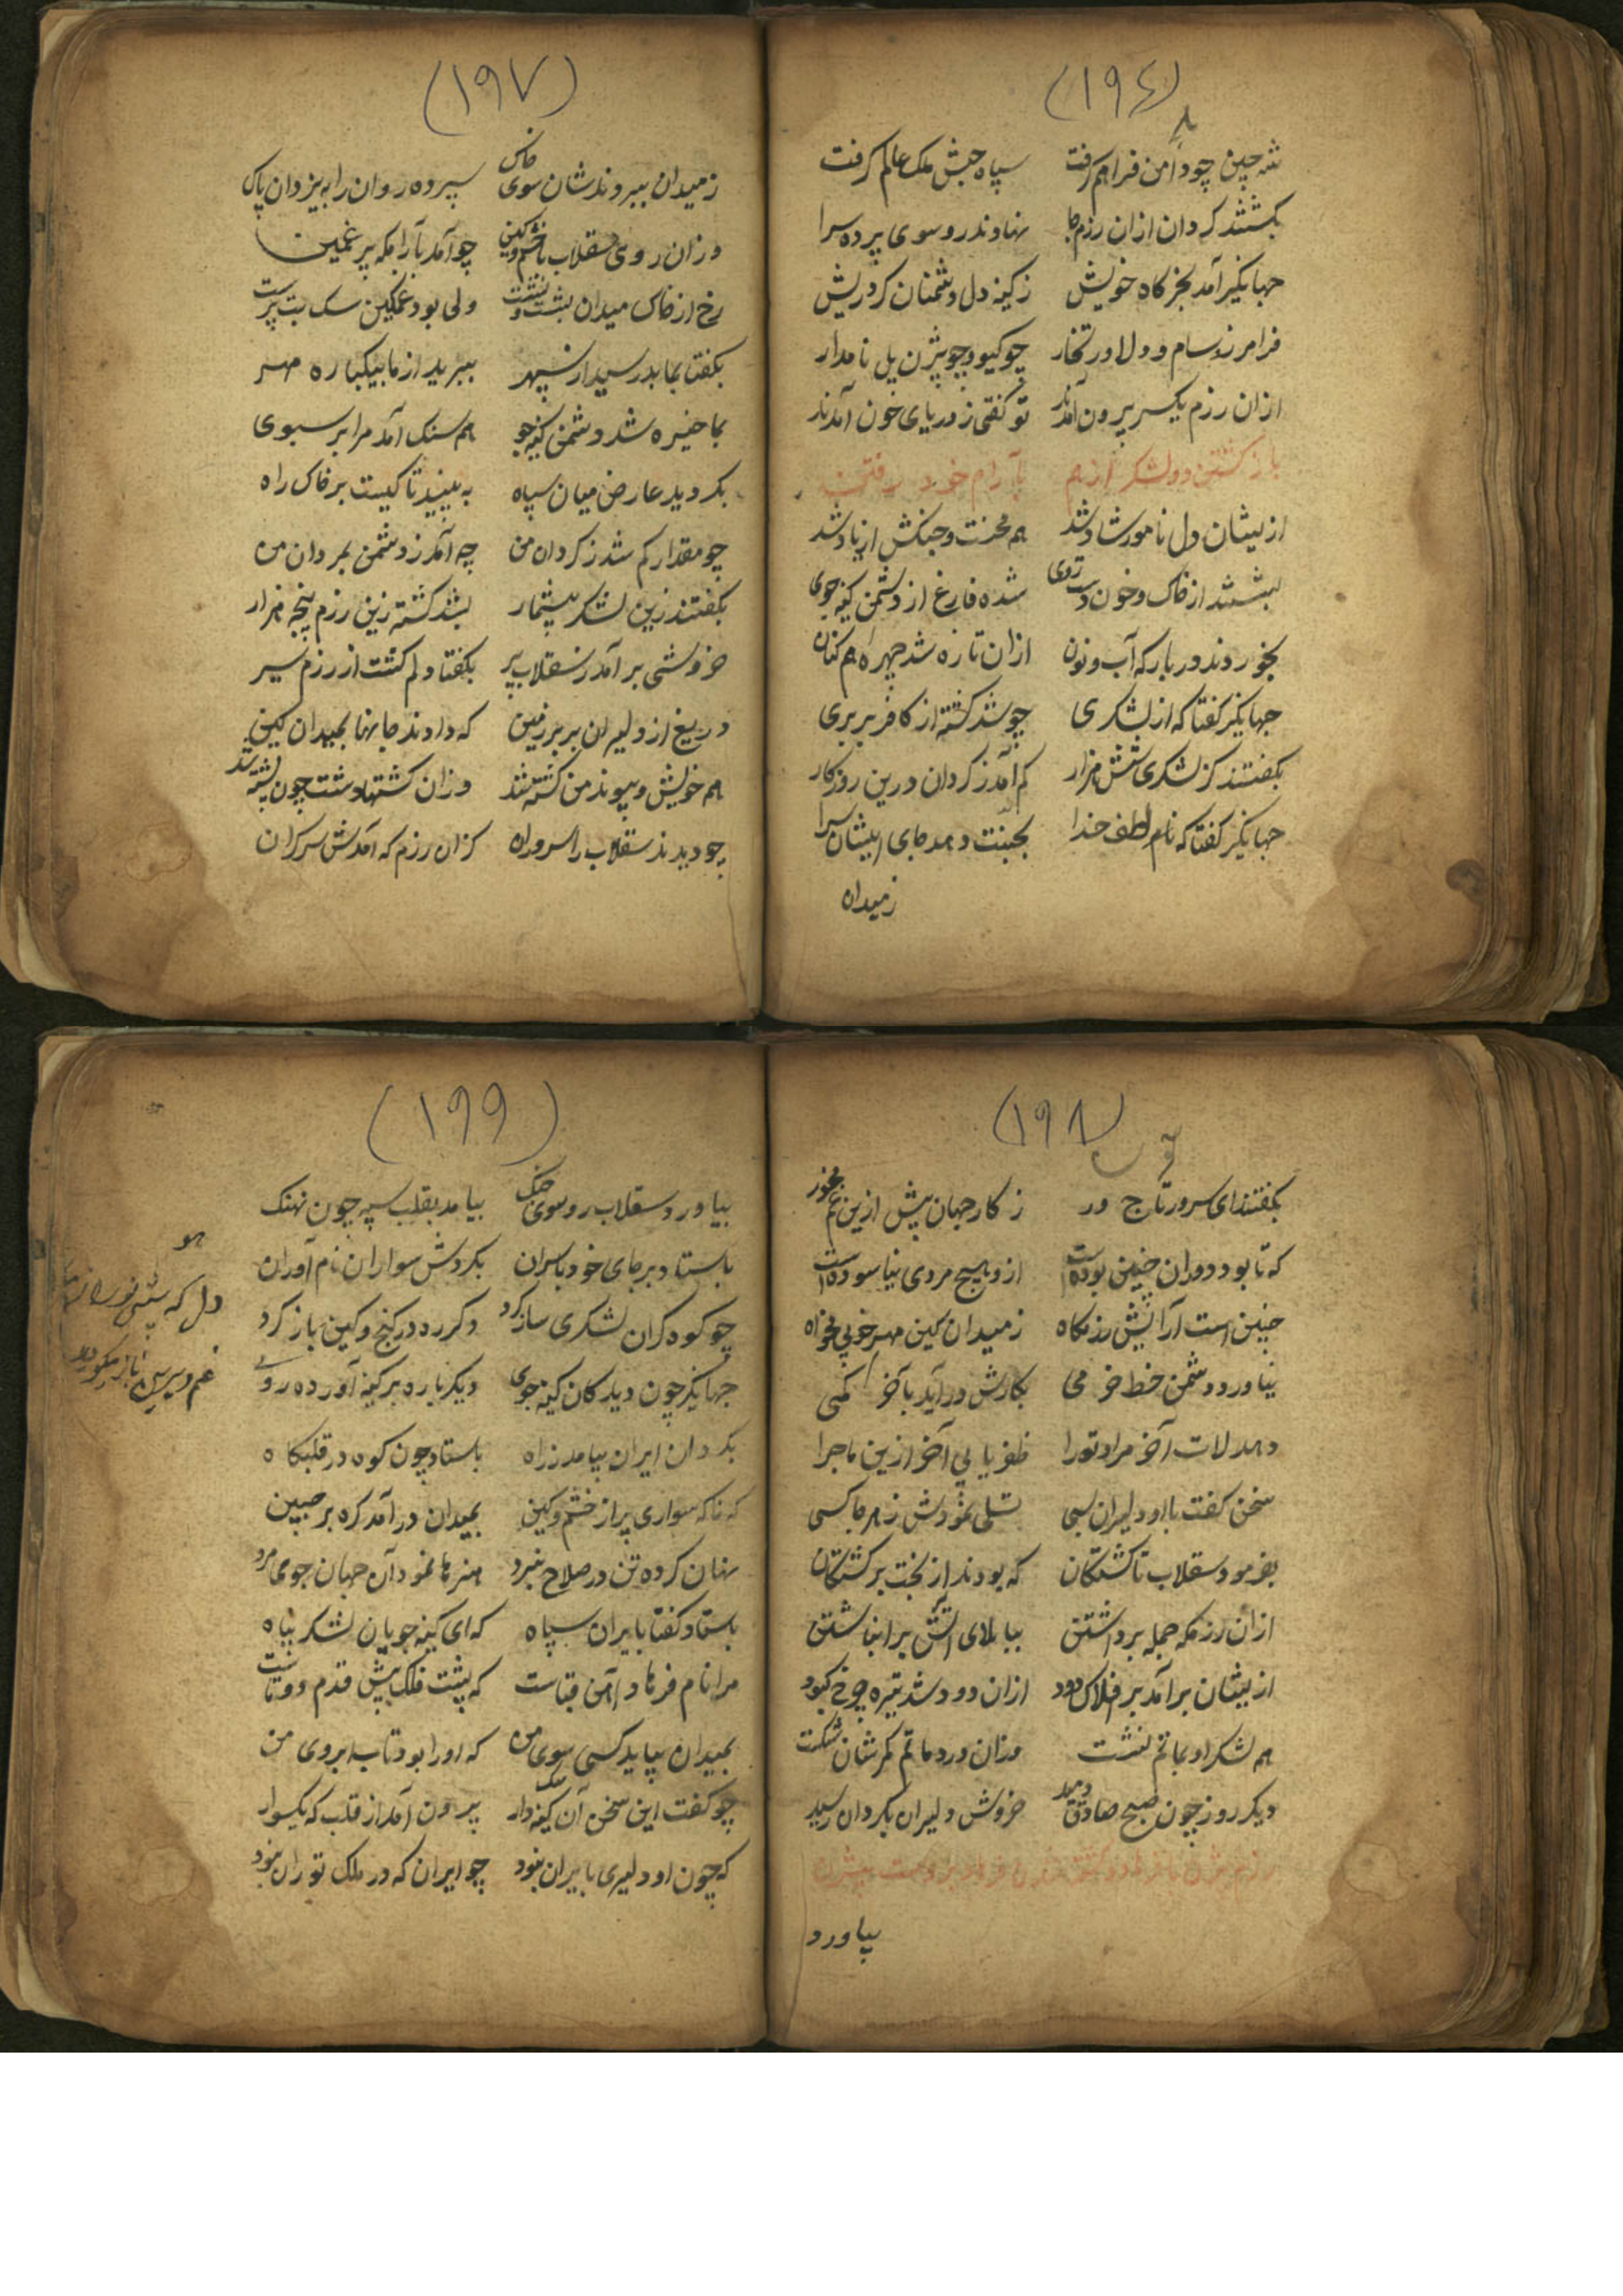 (۱۹۶)
شه چین چو دامن فراهم گرفت سپاه حبش ملک عالم گرفت
بگشتند کردان ازان رزم‌جا نهادند رو سوی پرده سرا
جهانکیر آمد بخرکاه خویش ز کینه دل دشمنان کرد ریش
فرامرز و سام و دلاور تخار چو کیو و چو بیژن یل نامدار
ازان رزم یکسر برون آمدند تو کفتی ز دریای خون آمدند
باز کشتن دو لشکر از هم بآرام خود رفتن
ازیشان دل نامور شاد شد هم محنت و جنکش از یاد شد
بشستند از خاک و خون دست و روی شده فارغ از دشمن کینه جوی
بخوردند در بارکه آب و نون ازان تازه شد چهره هم کنان
جهانکیر کفتا که از لشکری چو شد کشته از کافر بربری
بکفتند کز لشکری شش هزار کم آمد ز کردان درین روزکار
جهانکیر کفتا که نام لطف خدا بجنت دهد جای ایشان سرا
زمیدان
(۱۹۷)
زمیدان ببردند شان سوی خاک سپرده روان را به یزدان پاک
وزان روی سقلاب با خشم و کین چو آمد بآرامکه پر غمین
رخ از خاک میدان بشست و نشست ولی بود غمکین سک بت پرست
بکفتا بما بد رسید از سپهر ببرید از ما بیکباره مهر
بما خیره شد دشمن کینه جو هم سنک آمد مرا بر سبوی
بکردید عارض میان سپاه به بینید تا کیست بر خاک راه
چو مقدار کم شد ز کردان من چه آمد ز دشمن بمردان من
بکفتند زین لشکر بیشمار بشد کشته زین رزم پنجه هزار
خروشی بر آمد ز سقلاب پیر بکفتا دلم کشت از رزم سیر
دریغ از دلیران بربر زمین که دادند جانها بمیدان کین
هم خویش و پیوند من کشته شد وزان کشتها دشت چون پشته شد
چو دیدند سقلاب را سروران کزان رزمکه آمدش سر کران
(۱۹۸)
بکفتند ای سرور تاج ور ز کار جهان بیش ازین غم مخور
که تا بود دوران چنین بوده است ازو هیچ مردی نیاسوده است
چنین است آرایش رزمکاه زمیدان کین مهر خوبی مخواه
نیاورد دشمن خط خرمی بکارش در آید بآخر کمی
دهد لات آخر مراد تورا ظفر یابی آخر ازین ماجرا
سخن کفت با او دلیران بسی تسلی نمودش ز هر جا کسی
بفرمود سقلاب تا کشتکان که بودند از بخت برکشتکان
ازان رزمکه جمله برداشتن ببالای آتش بر انباشتن
ازیشان برآمد بر افلاک دود ازان دود شد تیره چرخ کبود
هم لشکر او بماتم نشست وزان درد ماتم کمرشان شکست
دیکر روز چون صبح صادق دمید خروش دلیران بکردان رسید
بیاورد
(۱۹۹)
بیاورد سقلاب رو سوی جنک بیامد بقلب سپه چون نهنک
باستاد بر جای خود با سران بکردش سواران نام آوران
چو کوه کران لشکری ساز کرد دکر ره در کنج و کین باز کرد
جهانکیر چون دید کان کینه جوی دیکر باره بر کینه آورده روی
بکردان ایران بیامد ز راه باستاد چون کوه در قلبکاه
که ناکه سواری پر از خشم و کین بمیدان در آمد کره بر جبین
نهان کرده تن در صلاح نبرد هنرها نمود آن جهان جوی مرد
باستاد کفتا بایران سپاه که ای کینه جویان لشکر پناه
مرا نام فرهاد آهن قباست که پشت فلک پیش قدم دوتاست
بمیدان بیاید کسی سوی من که او را بود تاب ابروی من
چو کفت این سخن آن سک کینه دار برون آمد از قلب که یکسوار
که چون او دلیری بایران نبود چو ایران که در ملک توران نبود
هو